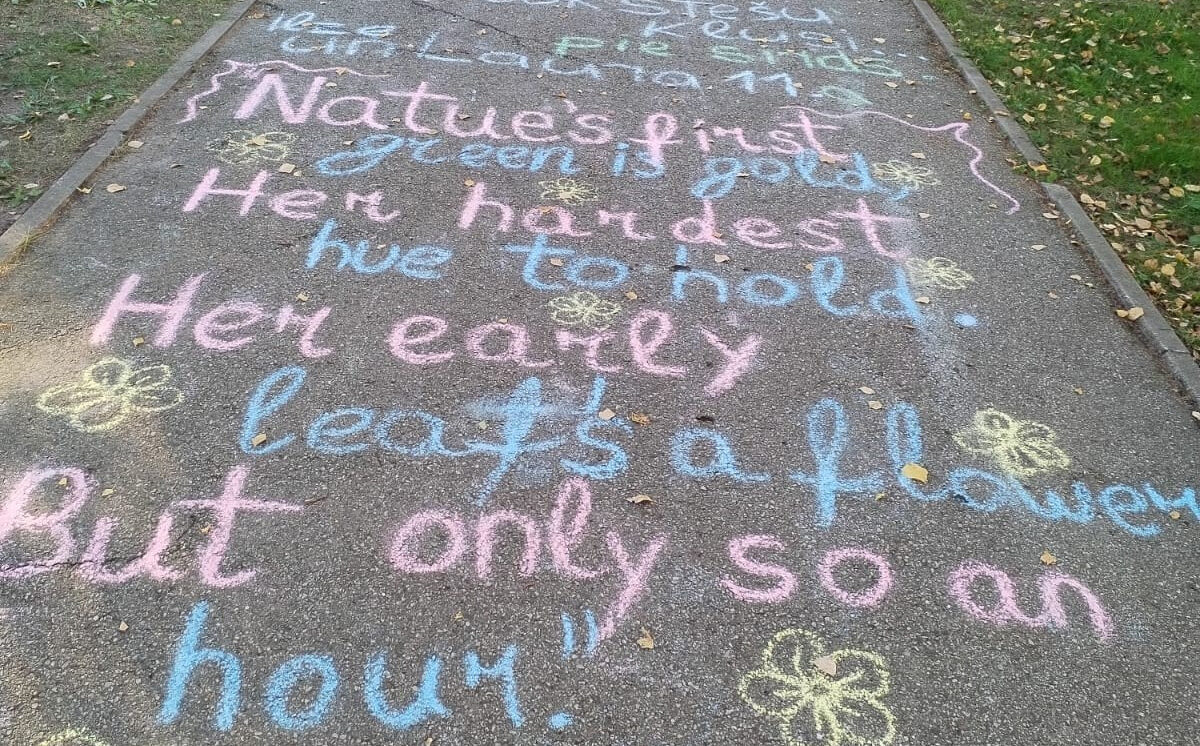 Ilze Klusi
un Laura 11.a pie šņās..
Natue's first
green is gold,
Her hardest
hue to hold.
Her early
leaf's a flower
But only so an
hour."